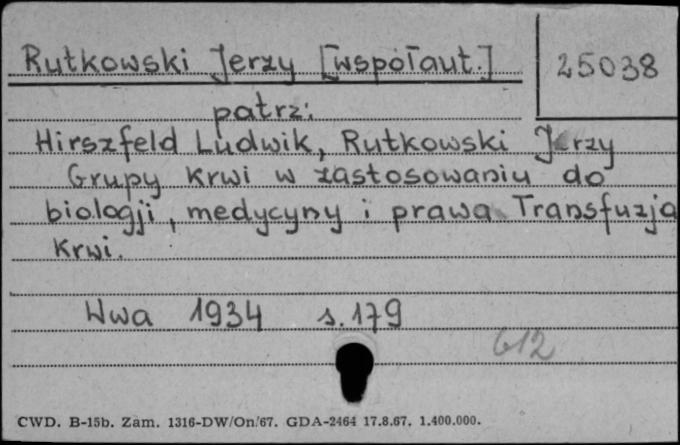 Rutkowski Jerzy [współaut.]
25038
patrz:
Hirszfeld Ludwik, Rutkowski Jerzy
Grupy krwi w zastosowaniu do
biologji, medycyny i prawa. Transfuzja
krwi.
Wwa 1934 s. 179
612
CWD. B-15b. Zam. 1316-DW/On/67. GDA-2464 17.8.67. 1.400.000.